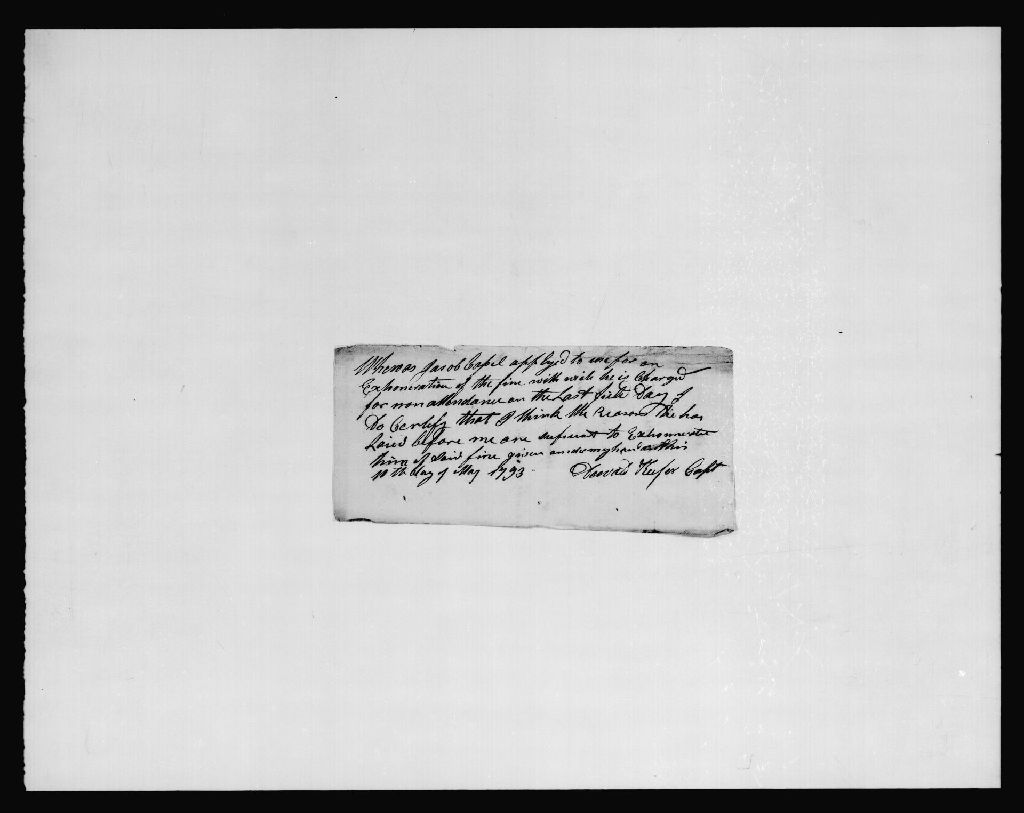 Whereas Jacob Capel applyed to me for an
Exhoniration of the fine with wich he is Charged
for non attendance on the Last field Day I
Do Certify that I think the Reasons he has
Laied before me are suficient to Exhonerate
him of said fine given under my hand this
10th day of May 1793 Keefer Capt